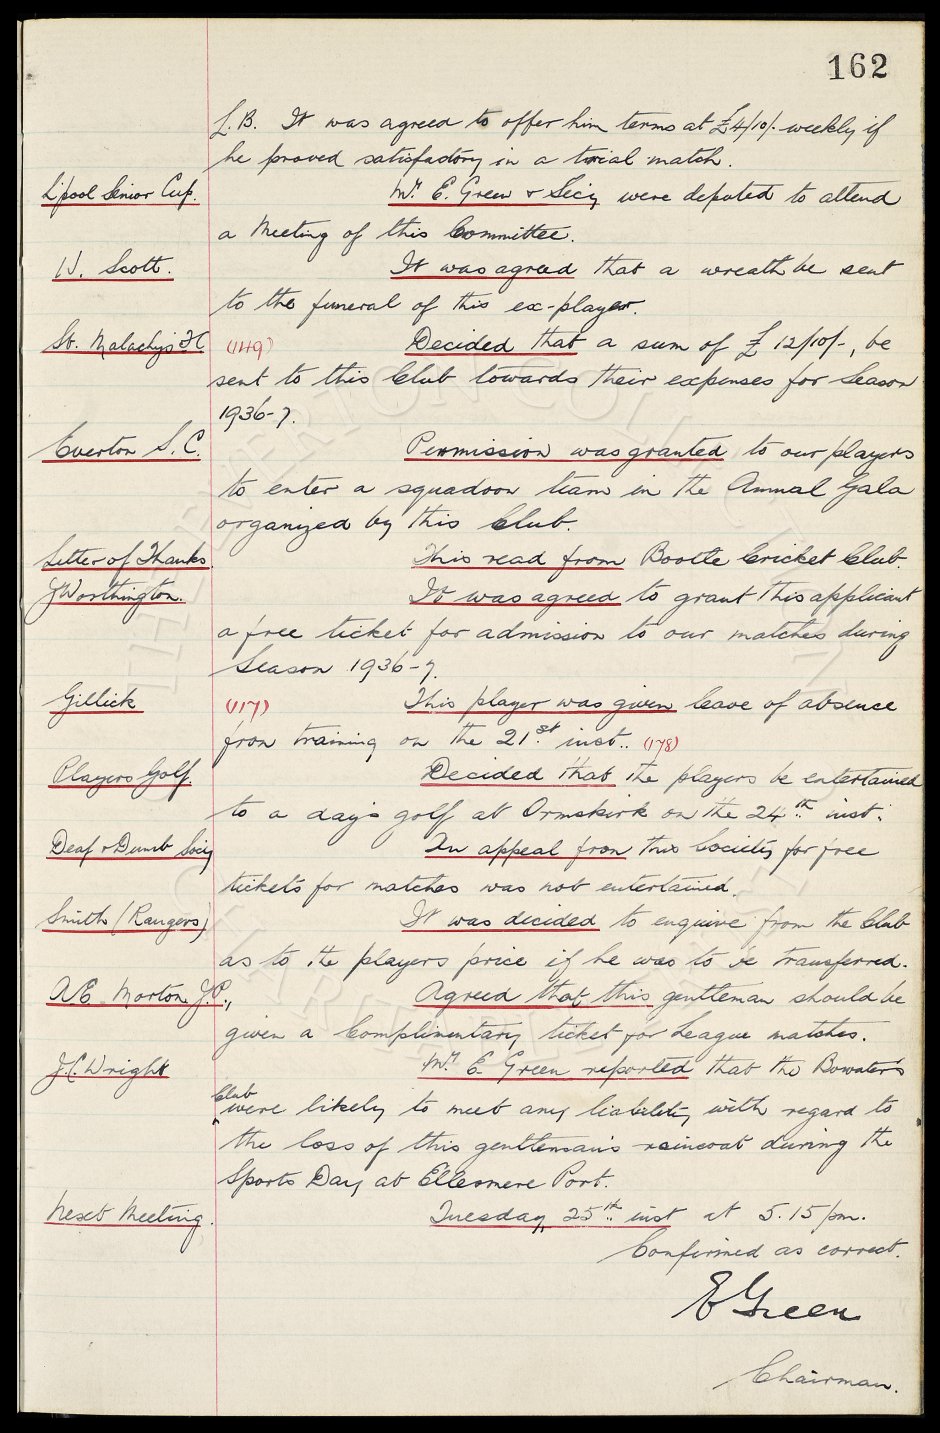 162
L.B. It was agreed to offer him terms at £4/10/- weekly if
he proved satisfactory in a trial match.
L'pool Senior Cup. Mr. E. Green & Secy were deputed to attend
a Meeting of this Committee.
W. Scott. It was agreed that a wreath be sent
to the funeral of this ex-player.
St. Malachy's FC (149) Decided that a sum of £12/10/-, be
sent to this Club towards their expenses for Season
1936-7.
Everton S.C. Permission was granted to our players
to enter a squadron team in the Annual Gala
organized by this Club.
Letter of Thanks This read from Bootle Cricket Club.
J Worthington. It was agreed to grant this applicant
a free ticket for admission to our matches during
Season 1936-7.
Gillick (117) This player was given leave of absence
from training on the 21st inst.. (178)
Players Golf. Decided that the players be entertained
to a day's golf at Ormskirk on the 24th inst.
Deaf & Dumb Socy An appeal from this Society for free
tickets for matches was not entertained.
Smith (Rangers) It was decided to enquire from the Club
as to the players price if he was to be transferred.
A.E. Morton J.P., Agreed that this gentleman should be
given a Complimentary ticket for League matches.
J.C. Wright Mr. E. Green reported that the Bowater's
Club
were likely to meet any liability with regard to
the loss of this gentleman's raincoat during the
Sports Day at Ellesmere Port.
Next Meeting. Tuesday, 25th inst at 5.15 pm.
Confirmed as correct.
E Green
Chairman.
THE EVERTON COLLECTION
CHARITABLE TRUST